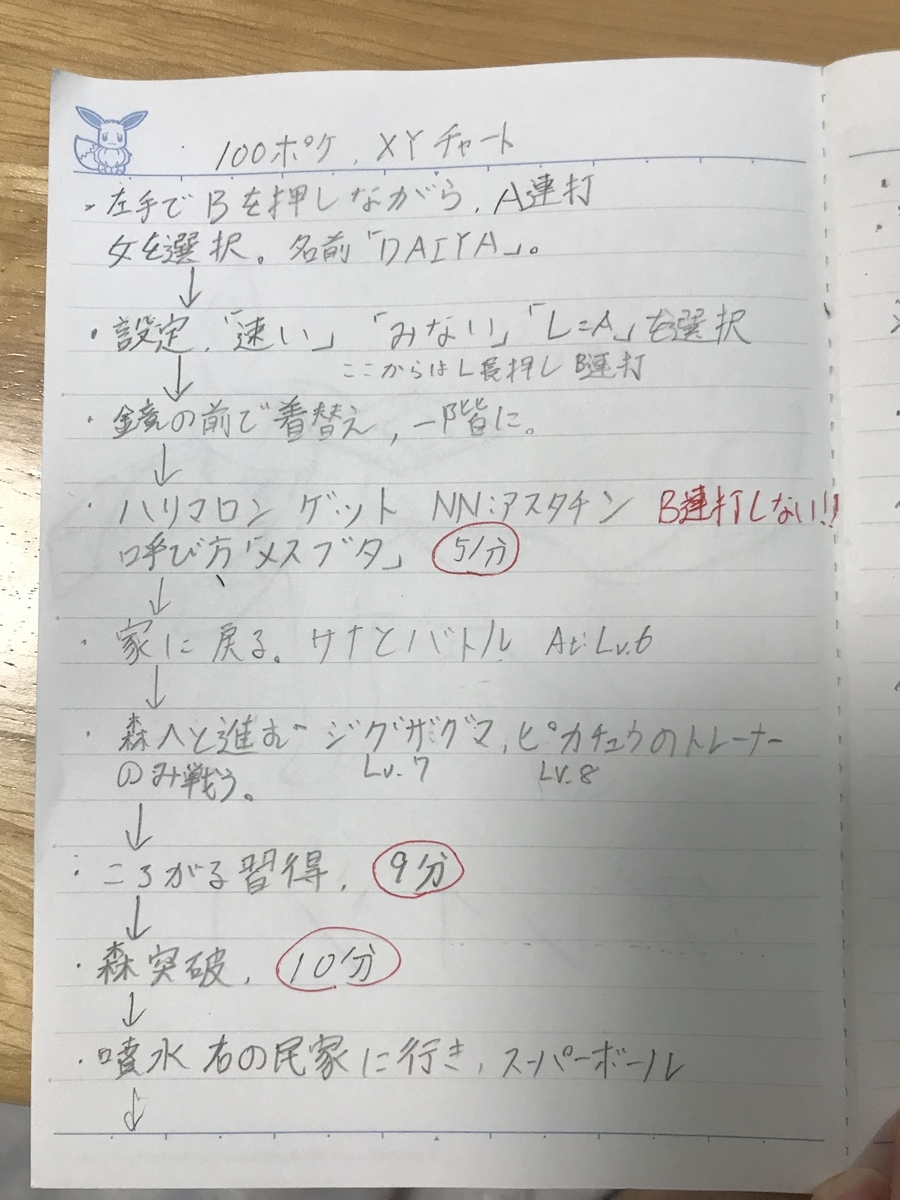 100ポケ、XYチャート
・左手でBを押しながら、A連打
女を選択。名前「DAIYA」。
↓
・設定、「速い」「みない」「L=A」を選択
↓ ここからはL長押しB連打
・鏡の前で着替え、一階に。
↓
・ハリマロン ゲット NN:アスタチン B連打しない!!
呼び方「メスブタ」 5分
↓
・家に戻る。サナとバトル At:Lv.6
↓
・森へと進む ジグザグマ、ピカチュウのトレーナー
のみ戦う。 Lv.7 Lv.8
↓
・ころがる習得、 9分
↓
・森突破、 10分
↓
・噴水右の民家に行き、スーパーボール
↓